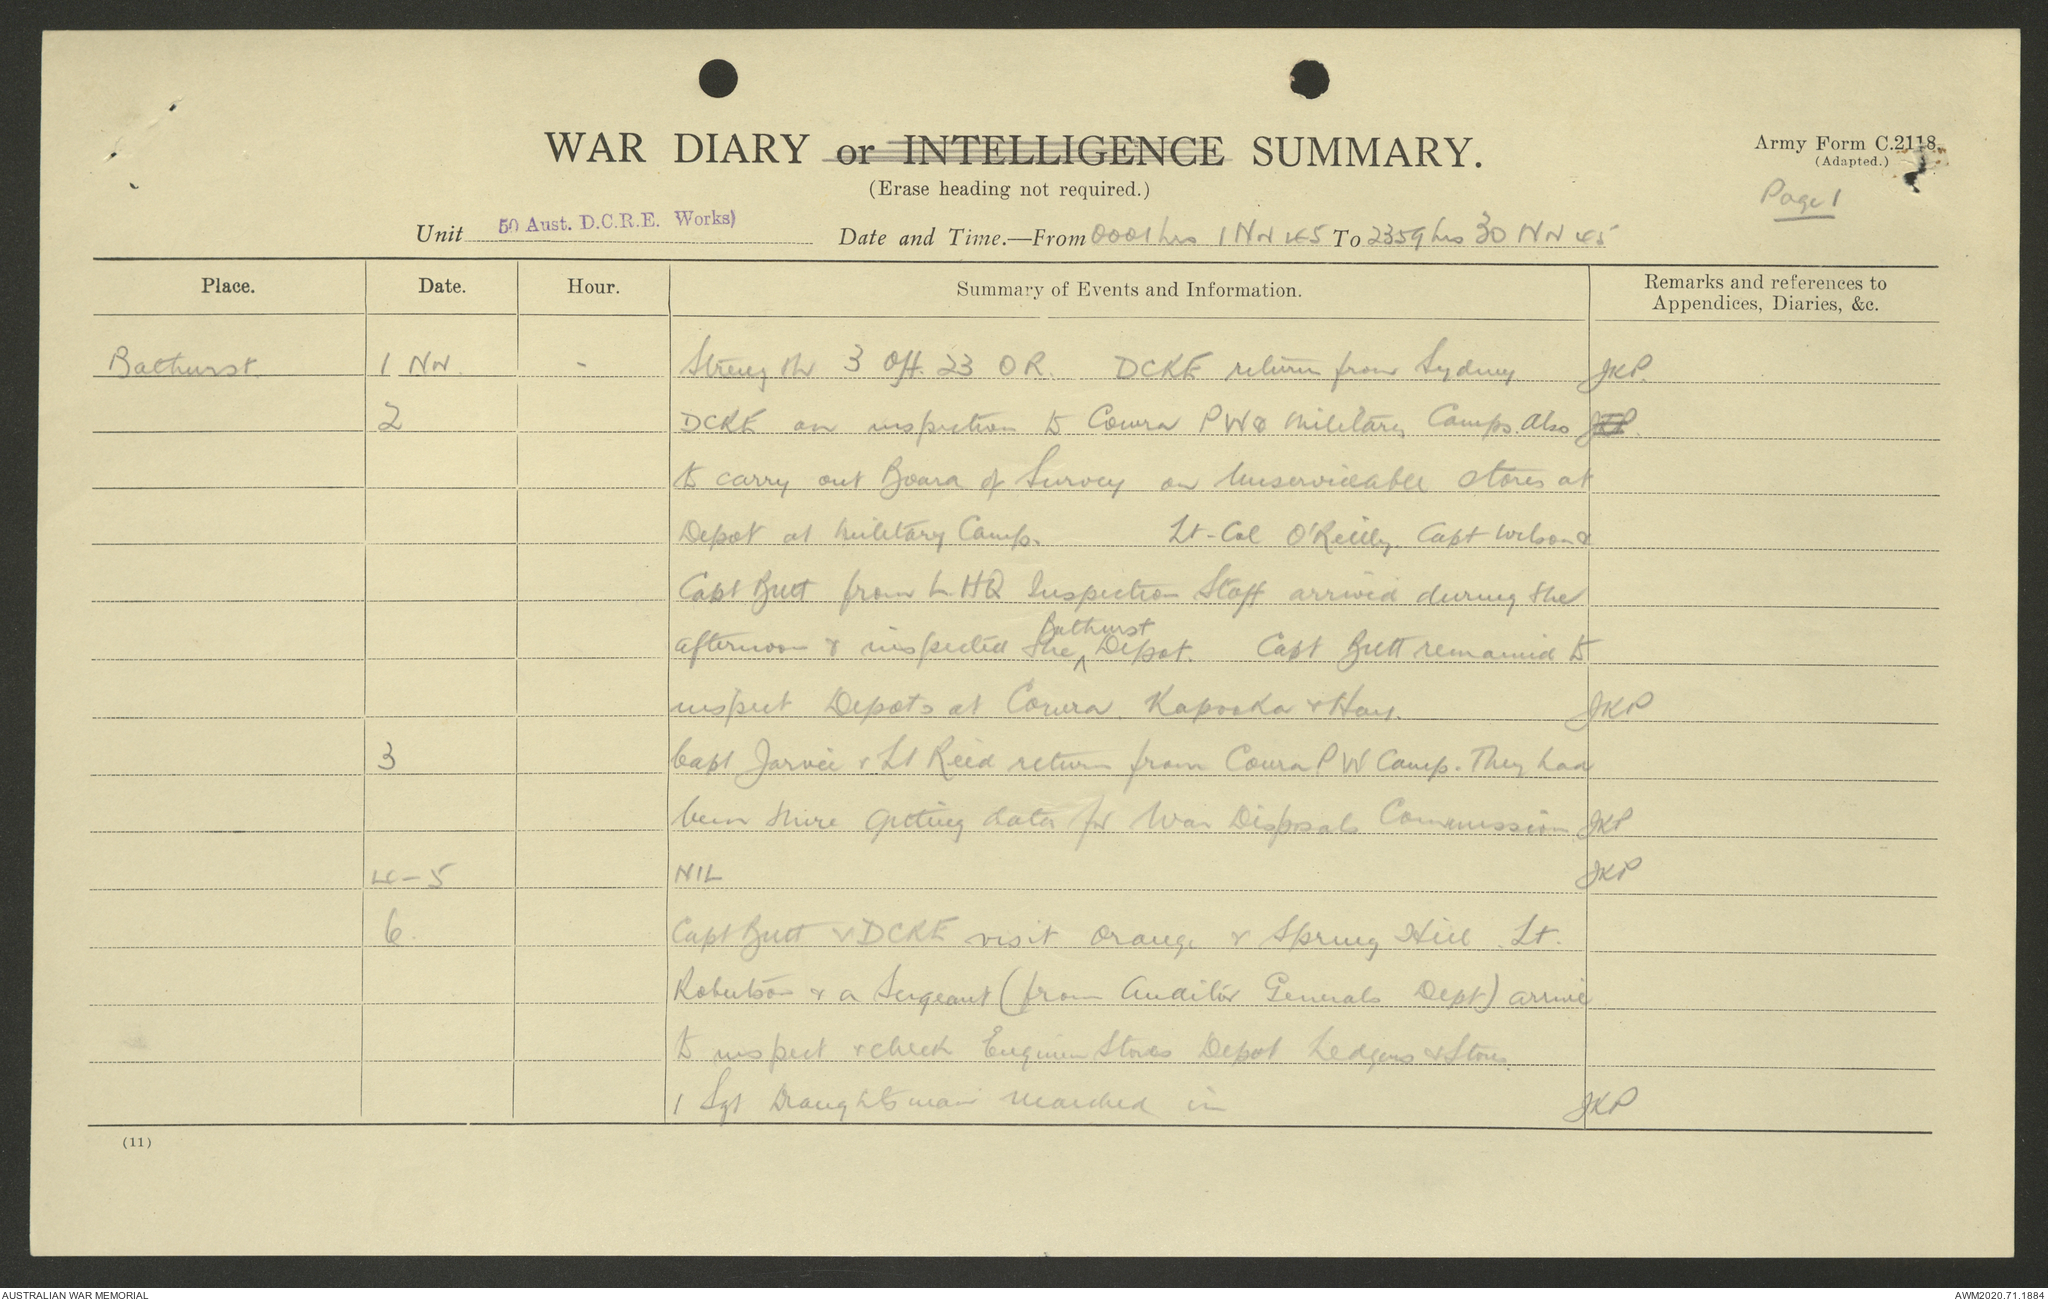 WAR DIARY or INTELLIGENCE SUMMARY.
(Erase heading not required.)
Army Form C.2118.
(Adapted.)
Page 1
Unit 50 Aust. D.C.R.E. Works)
Date and Time.—From 0001 hrs 1 Nov 45 To 2359 hrs 30 Nov 45
Place. Date. Hour. Summary of Events and Information. Remarks and references to
Appendices, Diaries, &c.
Bathurst 1 Nov - Strength 3 Off. 23 OR. DCRE return from Sydney JKP.
2 DCRE on inspection to Cowra PW & Military Camps. Also JKP.
to carry out Board of Survey on Unserviceable stores at
Depot at Military Camp. Lt-Col O'Reilly, Capt Wilson &
Capt Butt from LHQ Inspection Staff arrived during the
afternoon & inspected the Bathurst Depot. Capt Butt remained to
inspect Depots at Cowra, Kapooka & Hay. JKP
3 Capt Jarvie & Lt Reid return from Cowra PW Camp. They had
been there getting data for War Disposals Commission JKP
4-5 NIL JKP
6. Capt Butt & DCRE visit Orange & Spring Hill. Lt.
Robertson & a Sergeant (from Auditor Generals Dept) arrive
to inspect & check Engineer Stores Depot Ledgers & Stores.
1 Sgt Draughtsman marched in JKP
(11)
AUSTRALIAN WAR MEMORIAL
AWM2020.71.1884